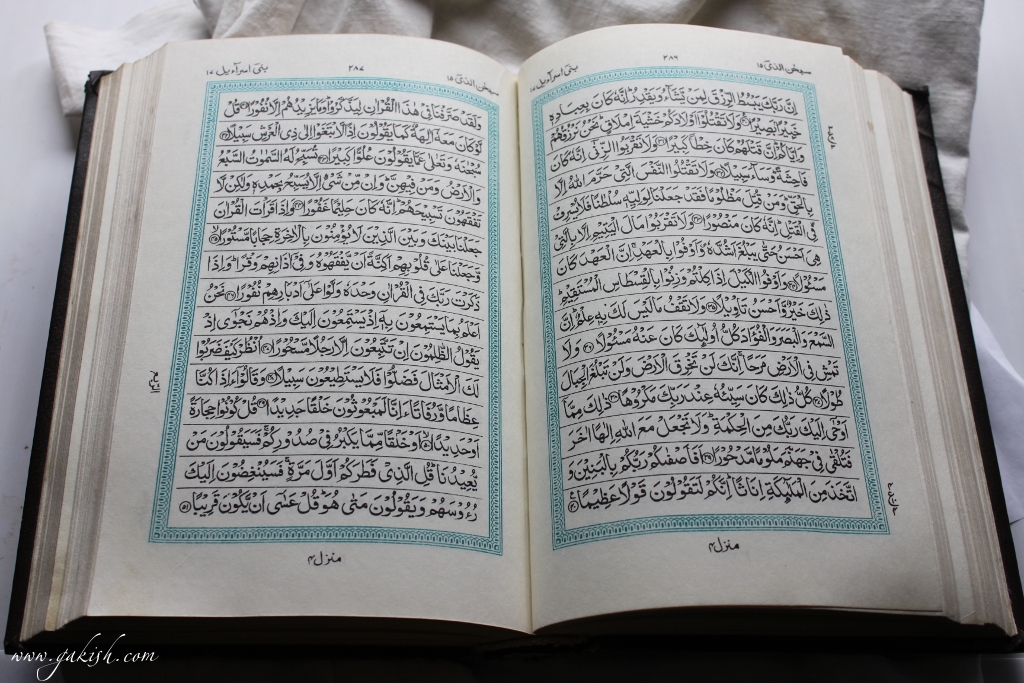 سبحٰن الذی ۱۵ ۲۸۶ بنی اسرآءیل ۱۷
اِنَّ رَبَّكَ یَبْسُطُ الرِّزْقَ لِمَنْ یَّشَآءُ وَیَقْدِرُ ؕ اِنَّهٗ كَانَ بِعِبَادِهٖ
خَبِیْرًۢا بَصِیْرًا ﴿۳۰﴾ وَلَا تَقْتُلُوْۤا اَوْلَادَكُمْ خَشْیَةَ اِمْلَاقٍ ؕ نَحْنُ نَرْزُقُهُمْ
وَاِیَّاكُمْ ؕ اِنَّ قَتْلَهُمْ كَانَ خِطْاً كَبِیْرًا ﴿۳۱﴾ وَلَا تَقْرَبُوا الزِّنٰۤی اِنَّهٗ كَانَ
فَاحِشَةً ؕ وَسَآءَ سَبِیْلًا ﴿۳۲﴾ وَلَا تَقْتُلُوا النَّفْسَ الَّتِیْ حَرَّمَ اللّٰهُ اِلَّا
بِالْحَقِّ ؕ وَمَنْ قُتِلَ مَظْلُوْمًا فَقَدْ جَعَلْنَا لِوَلِیِّهٖ سُلْطٰنًا فَلَا یُسْرِفْ
فِّی الْقَتْلِ ؕ اِنَّهٗ كَانَ مَنْصُوْرًا ﴿۳۳﴾ وَلَا تَقْرَبُوْا مَالَ الْیَتِیْمِ اِلَّا بِالَّتِیْ
هِیَ اَحْسَنُ حَتّٰی یَبْلُغَ اَشُدَّهٗ ۪ وَاَوْفُوْا بِالْعَهْدِ ۚ اِنَّ الْعَهْدَ كَانَ
مَسْـُٔوْلًا ﴿۳۴﴾ وَاَوْفُوا الْكَیْلَ اِذَا كِلْتُمْ وَزِنُوْا بِالْقِسْطَاسِ الْمُسْتَقِیْمِ ؕ
ذٰلِكَ خَیْرٌ وَّاَحْسَنُ تَاْوِیْلًا ﴿۳۵﴾ وَلَا تَقْفُ مَا لَیْسَ لَكَ بِهٖ عِلْمٌ ؕ اِنَّ
السَّمْعَ وَالْبَصَرَ وَالْفُؤَادَ كُلُّ اُولٰٓئِكَ كَانَ عَنْهُ مَسْـُٔوْلًا ﴿۳۶﴾ وَلَا
تَمْشِ فِی الْاَرْضِ مَرَحًا ۚ اِنَّكَ لَنْ تَخْرِقَ الْاَرْضَ وَلَنْ تَبْلُغَ الْجِبَالَ
طُوْلًا ﴿۳۷﴾ كُلُّ ذٰلِكَ كَانَ سَیِّئُهٗ عِنْدَ رَبِّكَ مَكْرُوْهًا ﴿۳۸﴾ ذٰلِكَ مِمَّاۤ
اَوْحٰۤی اِلَیْكَ رَبُّكَ مِنَ الْحِكْمَةِ ؕ وَلَا تَجْعَلْ مَعَ اللّٰهِ اِلٰهًا اٰخَرَ
فَتُلْقٰی فِیْ جَهَنَّمَ مَلُوْمًا مَّدْحُوْرًا ﴿۳۹﴾ اَفَاَصْفٰىكُمْ رَبُّكُمْ بِالْبَنِیْنَ وَ
اتَّخَذَ مِنَ الْمَلٰٓئِكَةِ اِنَاثًا ؕ اِنَّكُمْ لَتَقُوْلُوْنَ قَوْلًا عَظِیْمًا ﴿۴۰﴾
منزل ۴
سبحٰن الذی ۱۵ ۲۸۷ بنی اسرآءیل ۱۷
وَلَقَدْ صَرَّفْنَا فِیْ هٰذَا الْقُرْاٰنِ لِیَذَّكَّرُوْا ؕ وَمَا یَزِیْدُهُمْ اِلَّا نُفُوْرًا ﴿۴۱﴾ قُلْ
لَّوْ كَانَ مَعَهٗۤ اٰلِهَةٌ كَمَا یَقُوْلُوْنَ اِذًا لَّابْتَغَوْا اِلٰی ذِی الْعَرْشِ سَبِیْلًا ﴿۴۲﴾
سُبْحٰنَهٗ وَتَعٰلٰی عَمَّا یَقُوْلُوْنَ عُلُوًّا كَبِیْرًا ﴿۴۳﴾ تُسَبِّحُ لَهُ السَّمٰوٰتُ السَّبْعُ
وَالْاَرْضُ وَمَنْ فِیْهِنَّ ؕ وَاِنْ مِّنْ شَیْءٍ اِلَّا یُسَبِّحُ بِحَمْدِهٖ وَلٰكِنْ لَّا
تَفْقَهُوْنَ تَسْبِیْحَهُمْ ؕ اِنَّهٗ كَانَ حَلِیْمًا غَفُوْرًا ﴿۴۴﴾ وَاِذَا قَرَاْتَ الْقُرْاٰنَ
جَعَلْنَا بَیْنَكَ وَبَیْنَ الَّذِیْنَ لَا یُؤْمِنُوْنَ بِالْاٰخِرَةِ حِجَابًا مَّسْتُوْرًا ﴿۴۵﴾
وَّجَعَلْنَا عَلٰی قُلُوْبِهِمْ اَكِنَّةً اَنْ یَّفْقَهُوْهُ وَفِیْۤ اٰذَانِهِمْ وَقْرًا ؕ وَاِذَا
ذَكَرْتَ رَبَّكَ فِی الْقُرْاٰنِ وَحْدَهٗ وَلَّوْا عَلٰۤی اَدْبَارِهِمْ نُفُوْرًا ﴿۴۶﴾ نَحْنُ
اَعْلَمُ بِمَا یَسْتَمِعُوْنَ بِهٖۤ اِذْ یَسْتَمِعُوْنَ اِلَیْكَ وَاِذْ هُمْ نَجْوٰۤی اِذْ
یَقُوْلُ الظّٰلِمُوْنَ اِنْ تَتَّبِعُوْنَ اِلَّا رَجُلًا مَّسْحُوْرًا ﴿۴۷﴾ اُنْظُرْ كَیْفَ ضَرَبُوْا
لَكَ الْاَمْثَالَ فَضَلُّوْا فَلَا یَسْتَطِیْعُوْنَ سَبِیْلًا ﴿۴۸﴾ وَقَالُوْۤا ءَاِذَا كُنَّا
عِظَامًا وَّرُفَاتًا ءَاِنَّا لَمَبْعُوْثُوْنَ خَلْقًا جَدِیْدًا ﴿۴۹﴾ قُلْ كُوْنُوْا حِجَارَةً
اَوْ حَدِیْدًا ﴿۵۰﴾ اَوْ خَلْقًا مِّمَّا یَكْبُرُ فِیْ صُدُوْرِكُمْ ۚ فَسَیَقُوْلُوْنَ مَنْ
یُّعِیْدُنَا ؕ قُلِ الَّذِیْ فَطَرَكُمْ اَوَّلَ مَرَّةٍ ۚ فَسَیُنْغِضُوْنَ اِلَیْكَ
رُءُوْسَهُمْ وَیَقُوْلُوْنَ مَتٰی هُوَ ؕ قُلْ عَسٰۤی اَنْ یَّكُوْنَ قَرِیْبًا ﴿۵۱﴾
منزل ۴
www.gakish.com